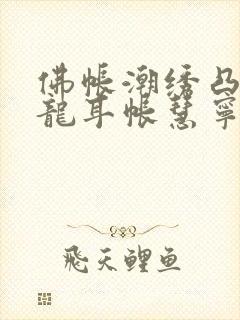 佛帐潮绣凸
龍耳帐慧寧
飛天鲤鱼